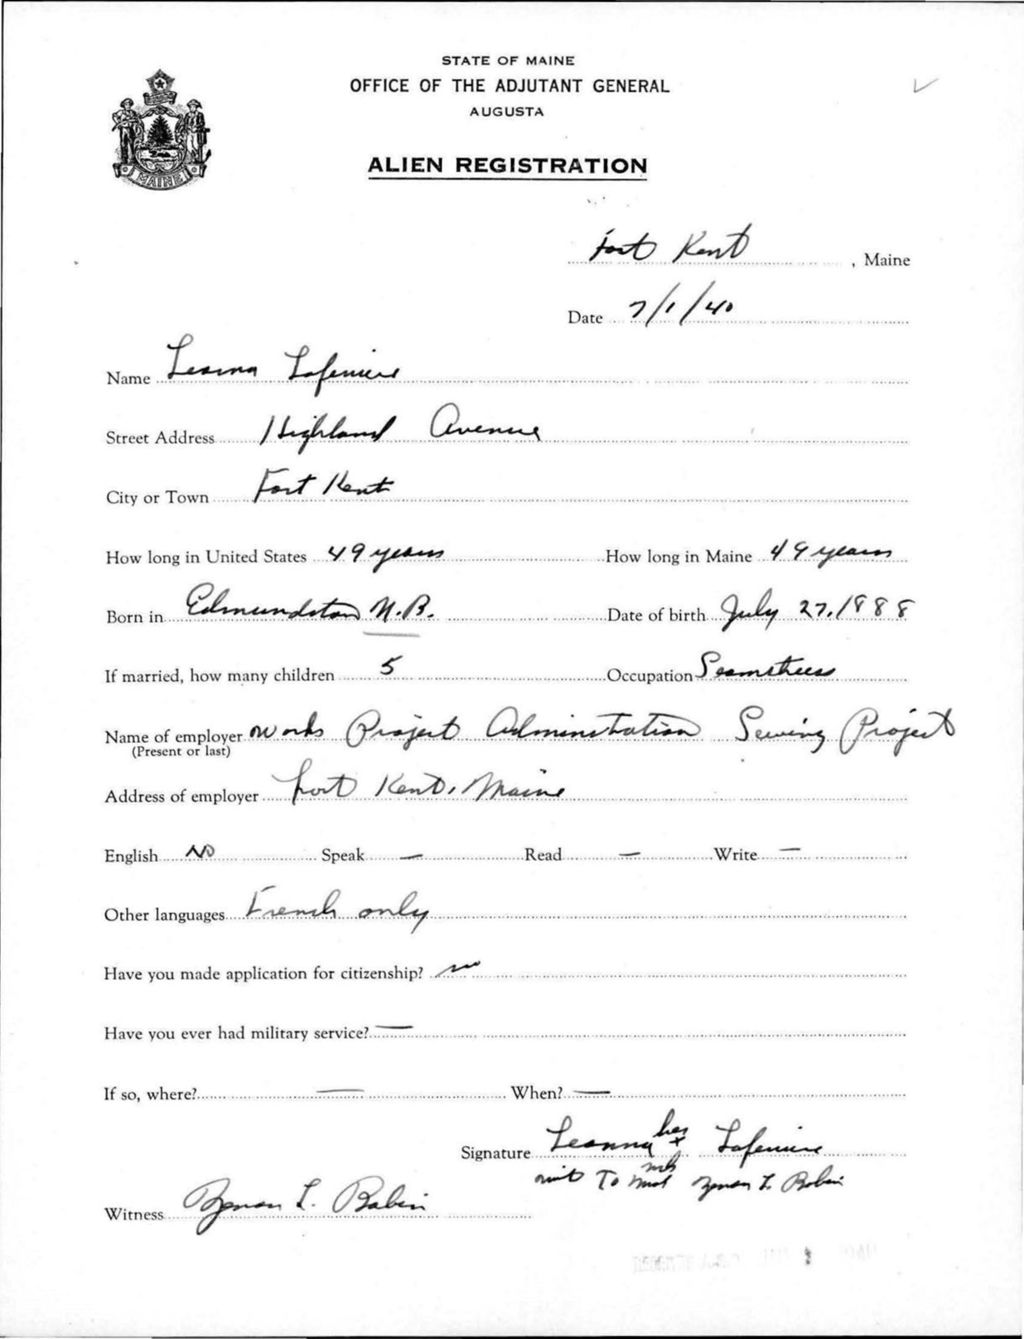 STATE OF MAINE
OFFICE OF THE ADJUTANT GENERAL
AUGUSTA
ALIEN REGISTRATION
MAINE
Fort Kent, Maine
Date 7/1/40
Name Leanna Lafemiere
Street Address Highland Avenue
City or Town Fort Kent
How long in United States 49 years How long in Maine 49 years
Born in Edmundston N.B. Date of birth July 27, 1888
If married, how many children 5 Occupation Seamstress
Name of employer Works Project Administration Sewing Project
(Present or last)
Address of employer Fort Kent, Maine
English No Speak — Read — Write —
Other languages French only
Have you made application for citizenship? no
Have you ever had military service? —
If so, where? — When? —
Signature Leanna her x Lafemiere
mk
wit To mark Zenon L. Babin
Witness Zenon L. Babin